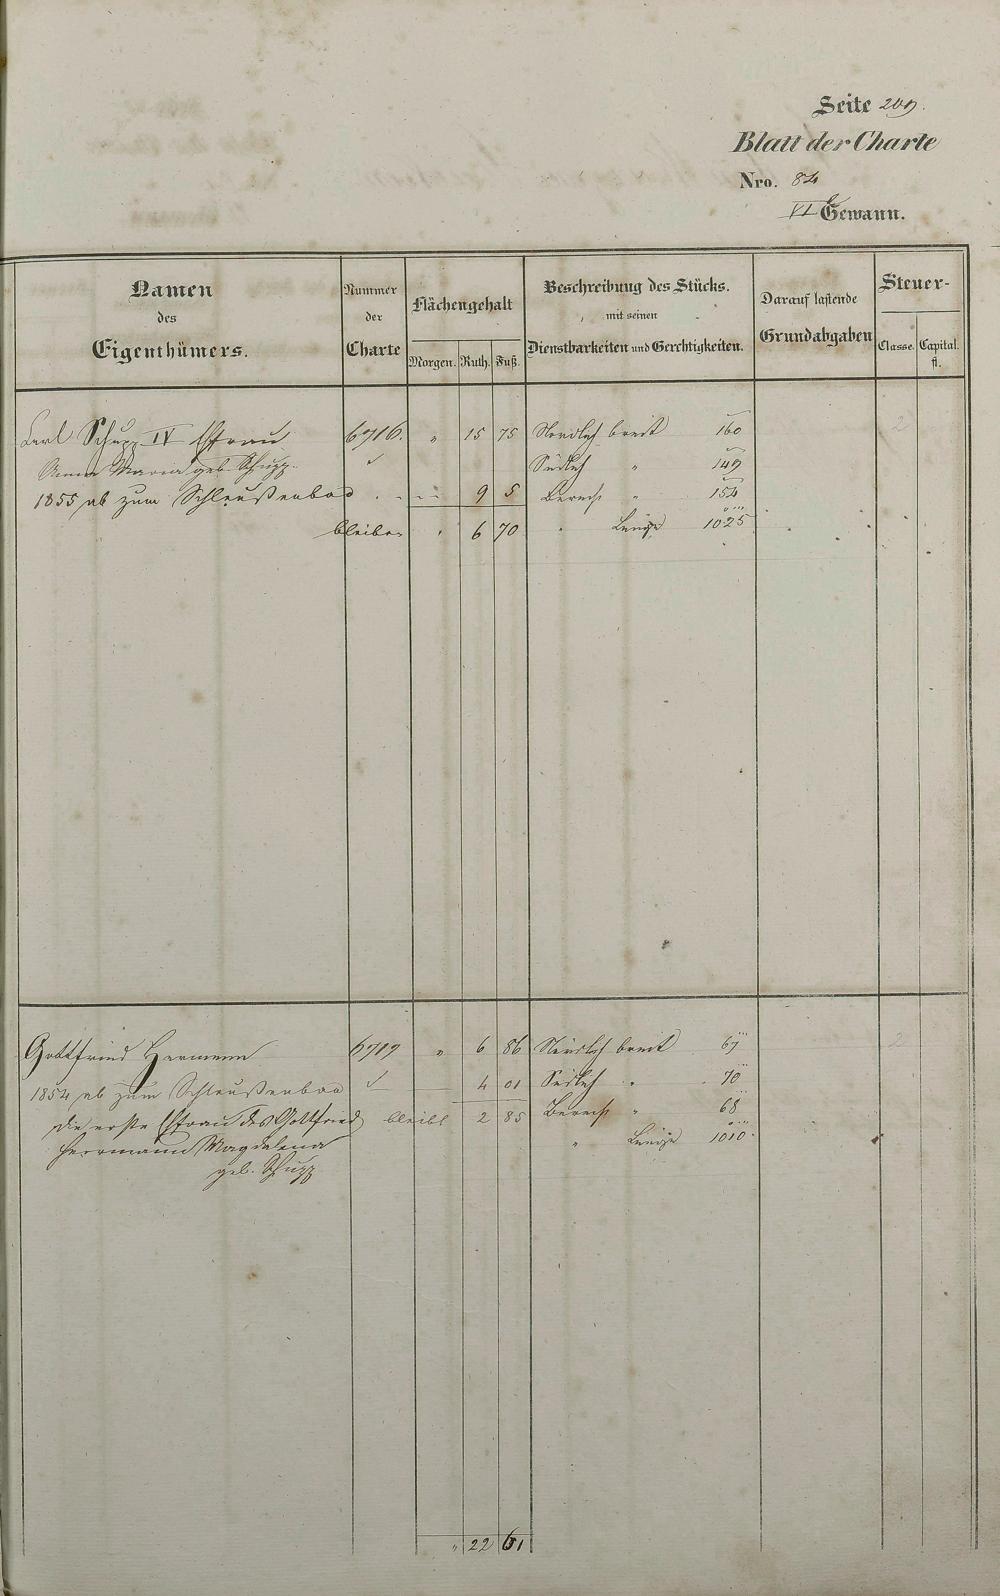 Seite 209.
Blatt der Charte
Nro. 84
VI Gewann.
Namen des Eigenthümers.
Nummer der Charte
Flächengehalt
Morgen. Ruth. Fuß.
Beschreibung des Stücks. mit seinen Dienstbarkeiten und Gerechtigkeiten.
Darauf lastende Grundabgaben
Steuer-
Classe. Capital. fl.
Carl Schupp IV Ehefrau 6716. " 15 75 Nördlich breit 160 2
Anna Maria geb. Schupp. Südlich " 149
1855 ab zum Schleußenbau 9 5 Berech " 154
bleiben 6 70 " Länge 1025
Gottfried Hermann 6717 " 6 86 Nördlich breit 67 2
1854 ab zum Schleußenbau 4 01 Südlich " 70
die erste Ehefrau des Gottfried bleibt 2 85 Berech " 68
Herrmann Magdalena " Länge 1010
geb. Schupp
" 22 61